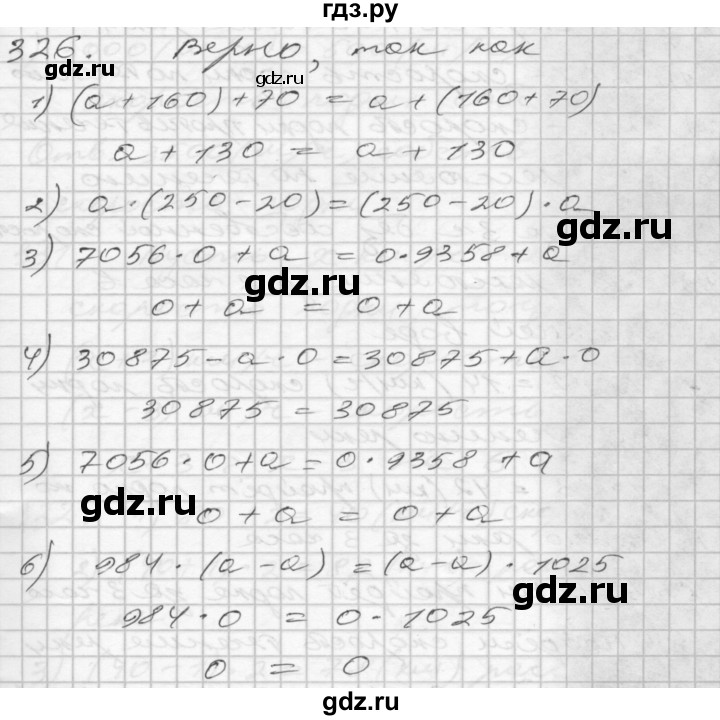 гдз.ру
326. Верно, так как
gdz.ru
1) (a + 160) + 70 = a + (160 + 70)
a + 130 = a + 130
2) a · (250 - 20) = (250 - 20) · a
gdz.ru
3) 7056 · 0 + a = 0 · 9358 + a
gdz.ru
0 + a = 0 + a
4) 30875 - a · 0 = 30875 + a · 0
30875 = 30875
gdz.ru
5) 7056 · 0 + a = 0 · 9358 + a
gdz.ru
0 + a = 0 + a
6) 984 · (a - a) = (a - a) · 1025
gdz.ru
984 · 0 = 0 · 1025
0 = 0
gdz.ru